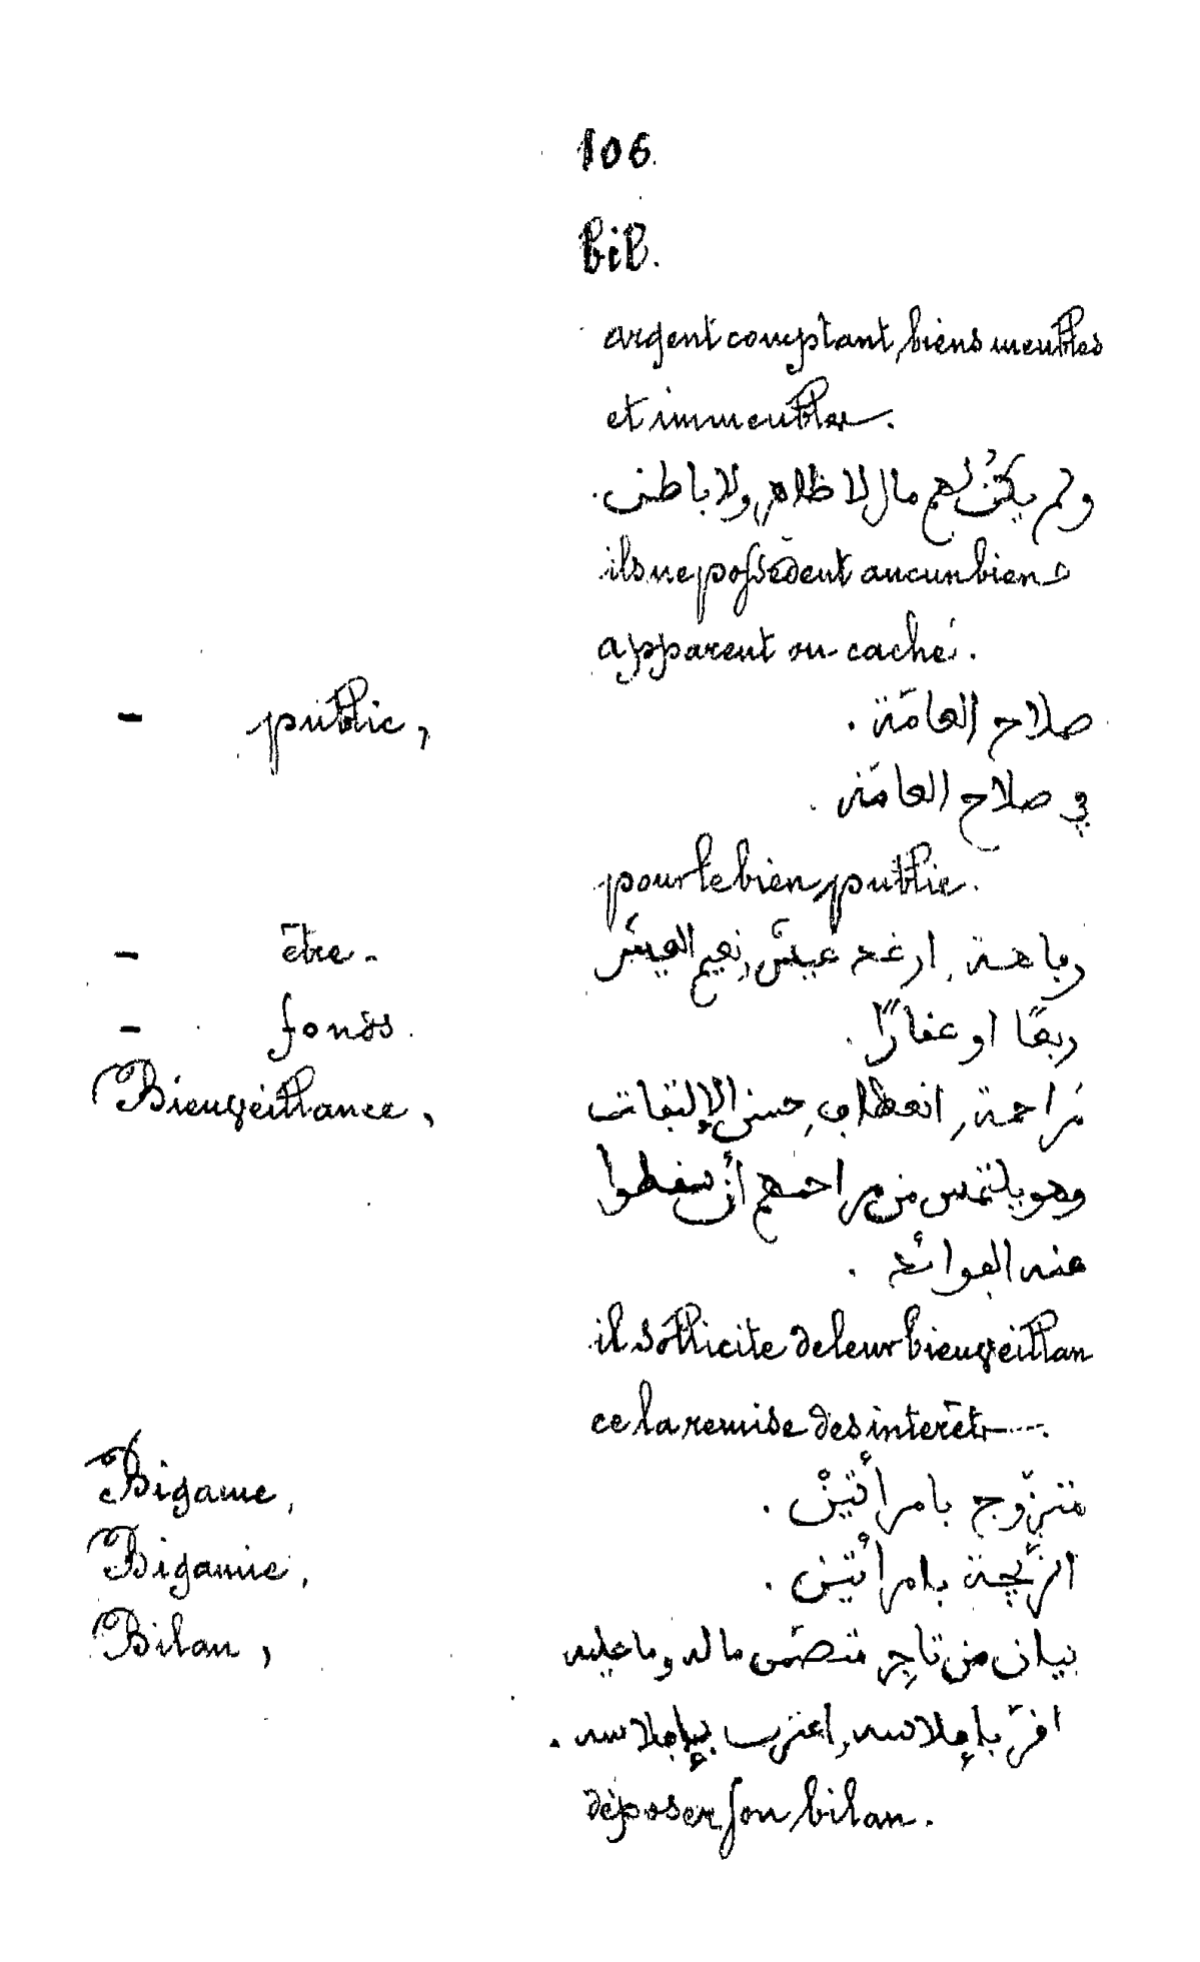 106.
bil.
argent comptant, biens meubles
et immeubles.
ولم يكُنْ لهم مال لا ظاهر ولا باطن.
ils ne possèdent aucun bien
apparent ou caché.
- public, صلاح العامّة.
في صلاح العامّة.
pour le bien public.
- être. رباهة, ارغد عيش, نعيم العيش
- fonds. ربعًا او عقارًا.
Bienveillance, مراحمة, انعطاف, حسن الإلتفات
وهو يلتمس من مراحمهم أنْ يسقطوا
عنه الفوائد.
il sollicite de leur bienveillan
ce la remise des interêts.
Bigame, متزوّج بامرأتيْن.
Bigamie, الزّيجة بامرأتين.
Bilan, بيان من تاجر متضمّن ما له وما عليه
اقرّ بإفلاسه, اعترف بإفلاسه.
déposer son bilan.